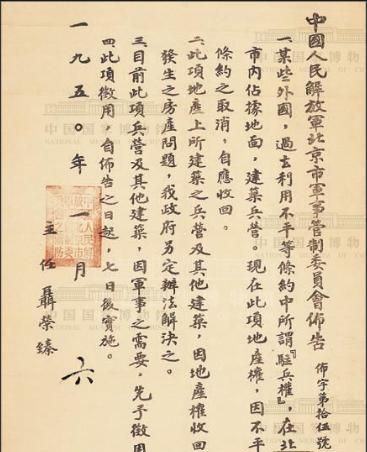 中國人民解放軍北京市軍事管制委員會佈告
佈字第拾伍號
一某些外國，過去利用不平等條約中所謂『駐兵權』，在北
市內佔據地面，建築兵營。現在此項地產權，因不平
條約之取消，自應收回。
二此項地產上所建築之兵營及其他建築，因地產權收回
發生之房產問題，我政府另定辦法解決之。
三目前此項兵營及其他建築，因軍事之需要，先予徵用
四此項徵用，自佈告之日起，七日後實施。
主任聶榮臻
一九五〇年一月六